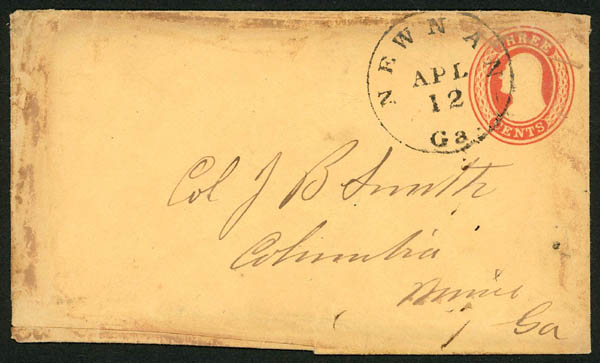 THREE
CENTS
NEWNAN
APL
12
Ga.
Col J B Smith
Columbia
Mines
Ga